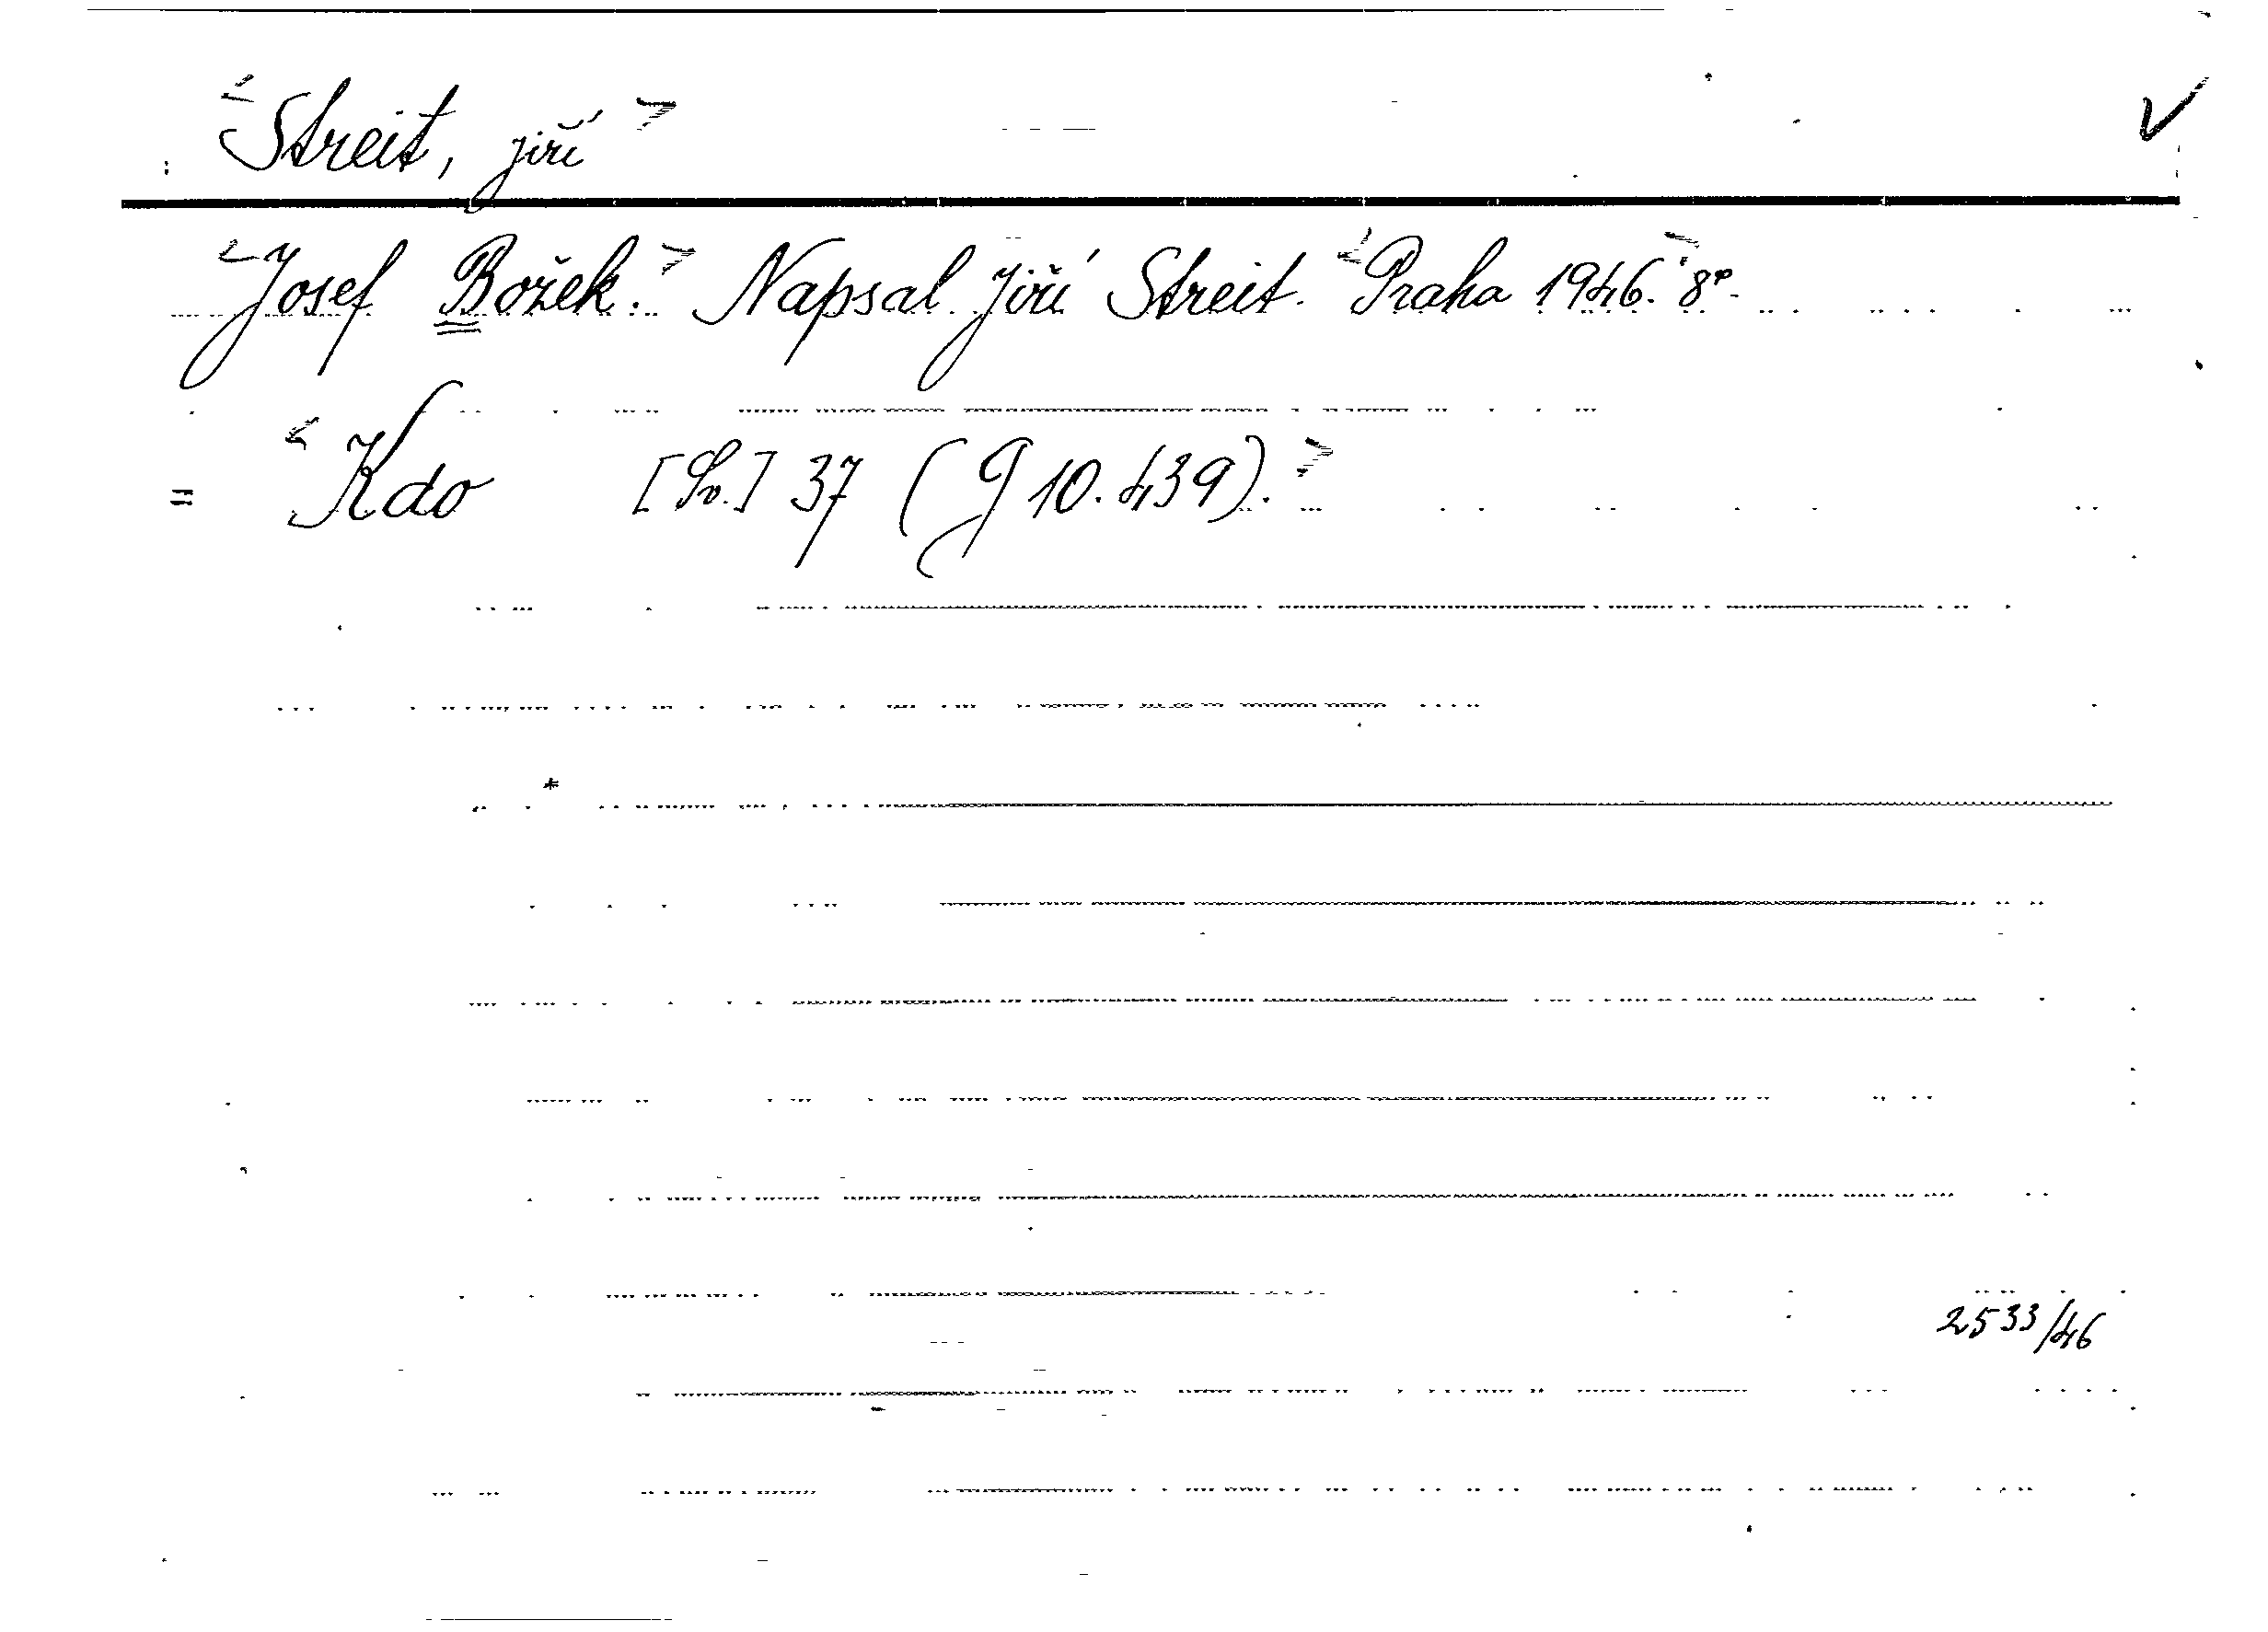 <Streit, Jiří>
<Josef Božek.> Napsal Jiří Streit. <Praha 1946.> 8°.
= <Kdo [Sv.] 37 (J 10.439).>
2533/46